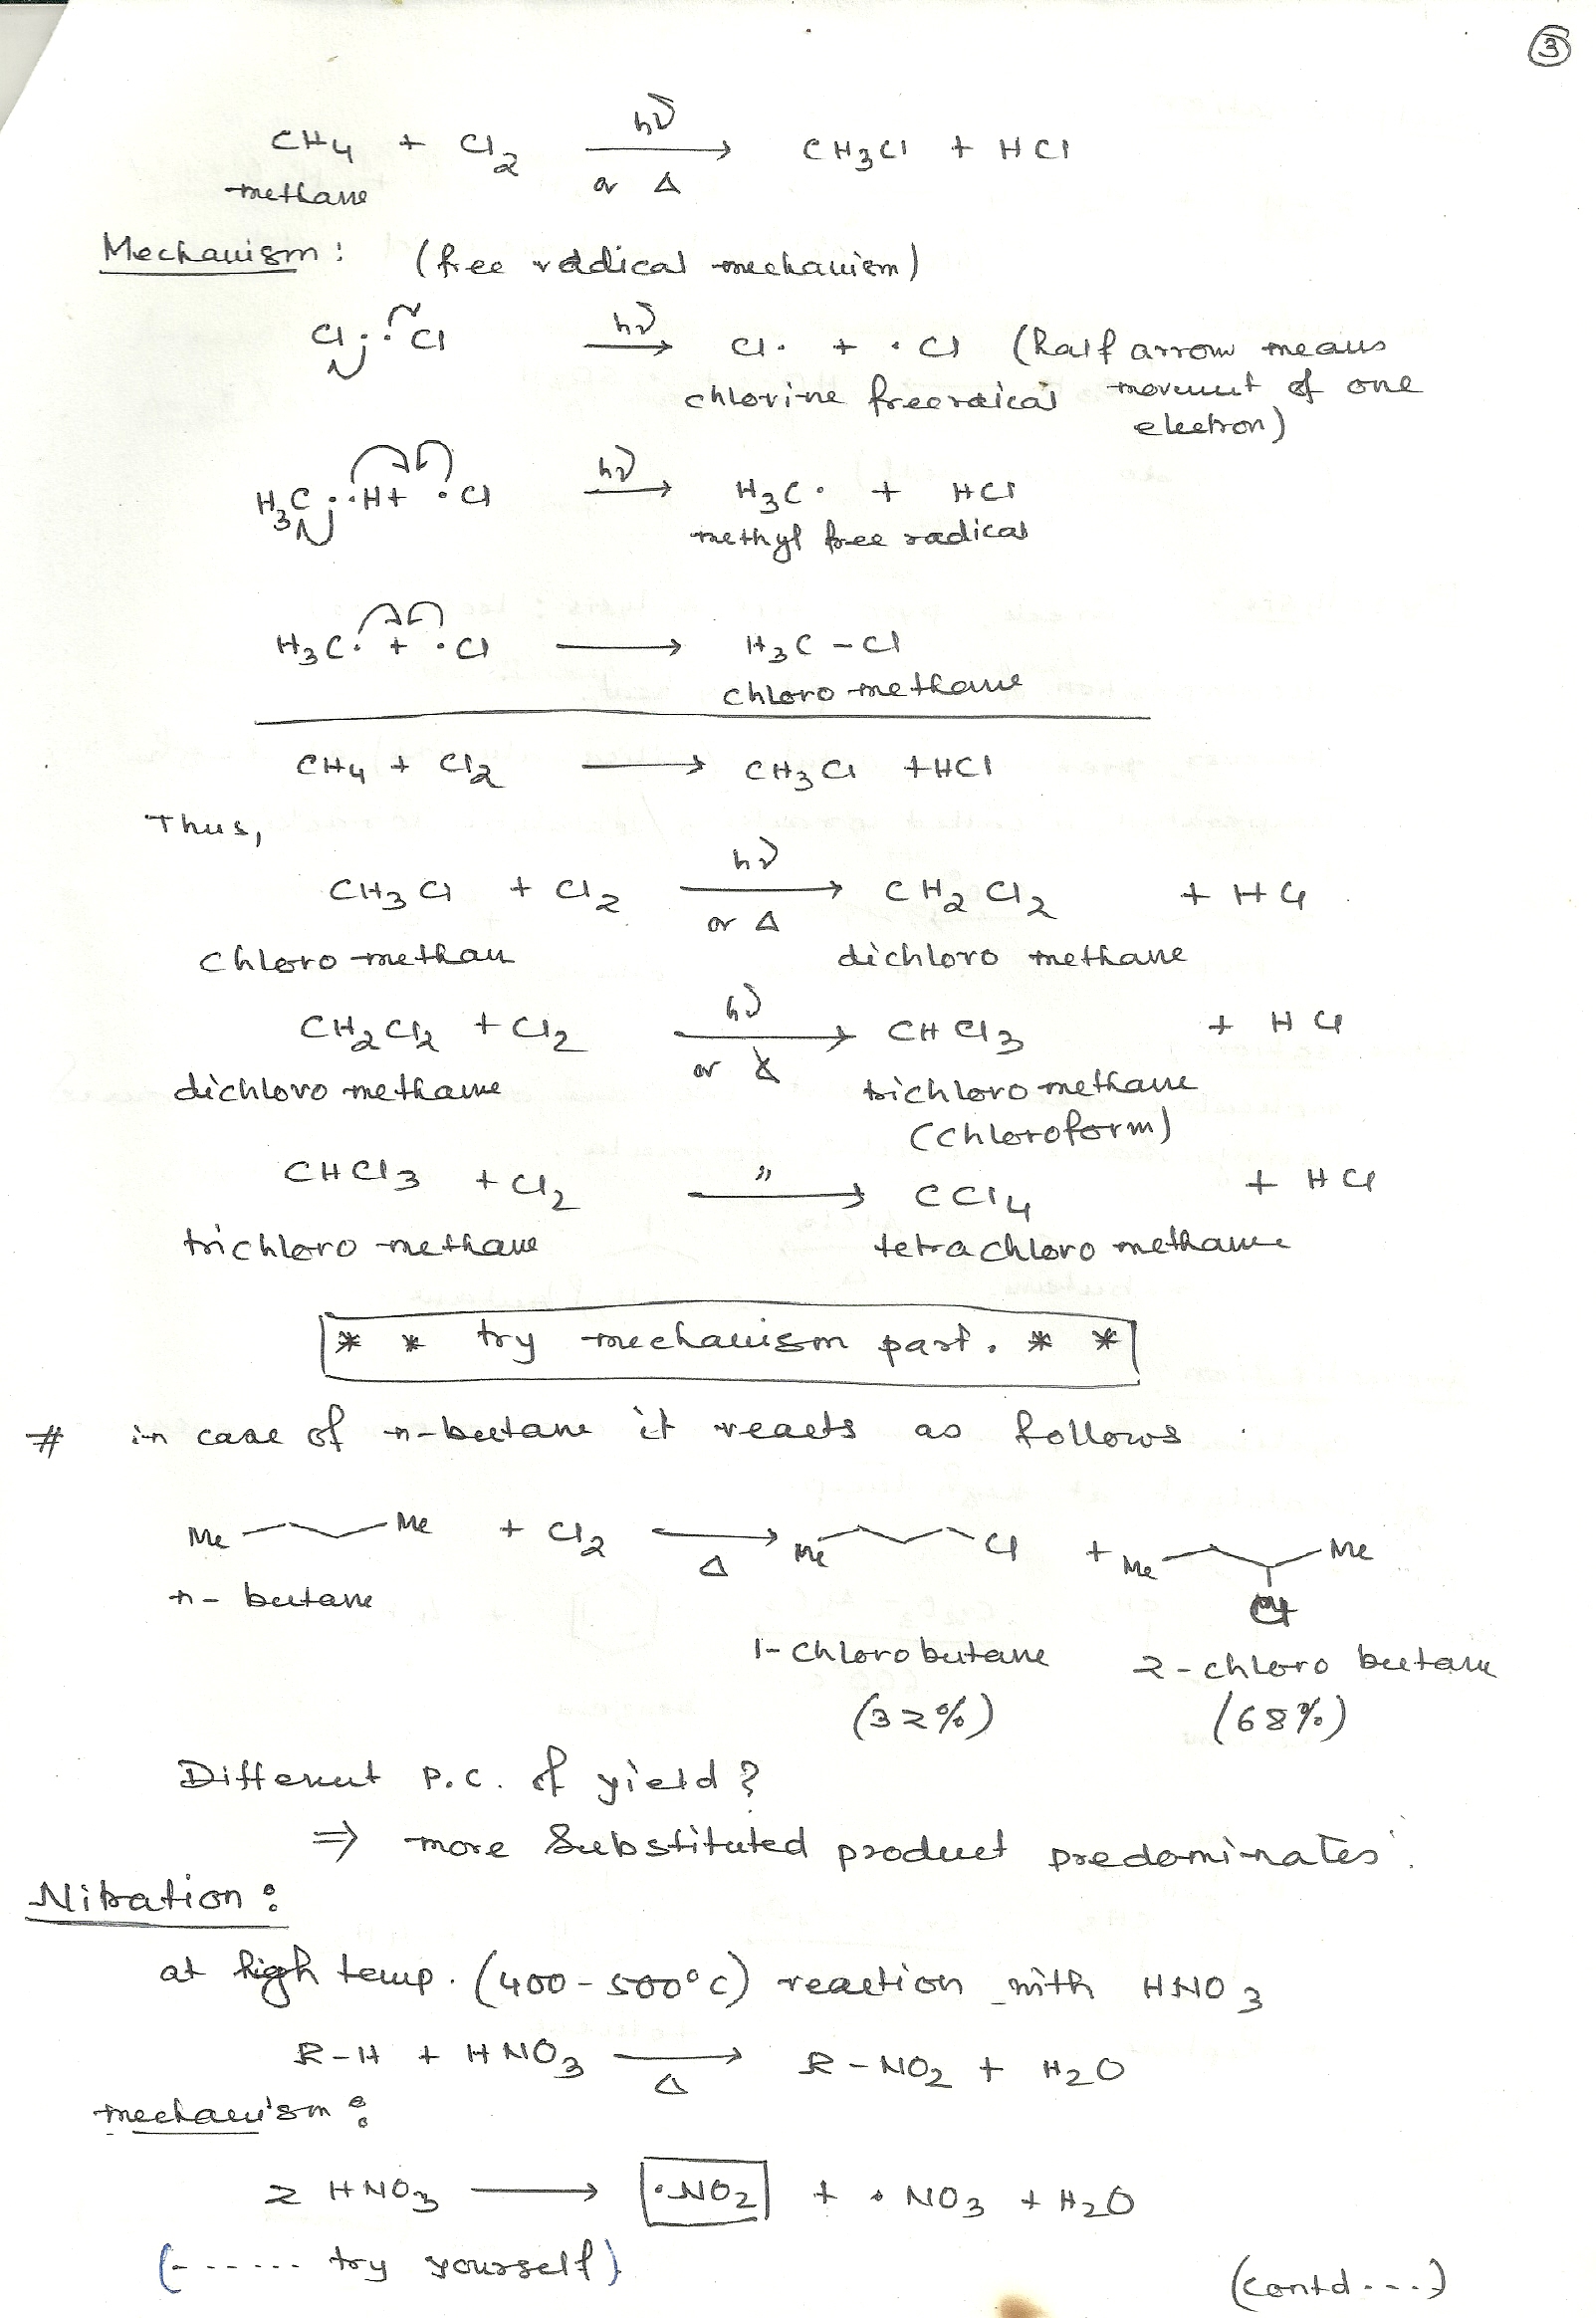 3
CH4 + Cl2 hν or Δ → CH3Cl + HCl
methane
Mechanism: (free radical mechanism)
Cl : Cl hν → Cl· + ·Cl (half arrow means
chlorine freeraical movement of one
electron)
H3C : H + ·Cl hν → H3C· + HCl
methyl free radical
H3C· + ·Cl → H3C-Cl
chloro methane
CH4 + Cl2 → CH3Cl + HCl
Thus,
CH3Cl + Cl2 hν or Δ → CH2Cl2 + HCl
chloro methan dichloro methane
CH2Cl2 + Cl2 hν or Δ → CHCl3 + HCl
dichloro methane trichloro methane
(chloroform)
CHCl3 + Cl2 " → CCl4 + HCl
trichloro methane tetrachloro methane
* * try mechanism part. * *
# in case of n-butane it reacts as follows
Me Me + Cl2 Δ → Me Cl + Me Me
n-butane Cl
1-chlorobutane 2-chloro butane
(32%) (68%)
Different P.C. of yield?
⇒ more Substituted product predominates.
Nitration:
at high temp. (400-500°C) reaction with HNO3
R-H + HNO3 Δ → R-NO2 + H2O
mechanism:
2 HNO3 → ·NO2 + ·NO3 + H2O
(------ try yourself)
(contd...)